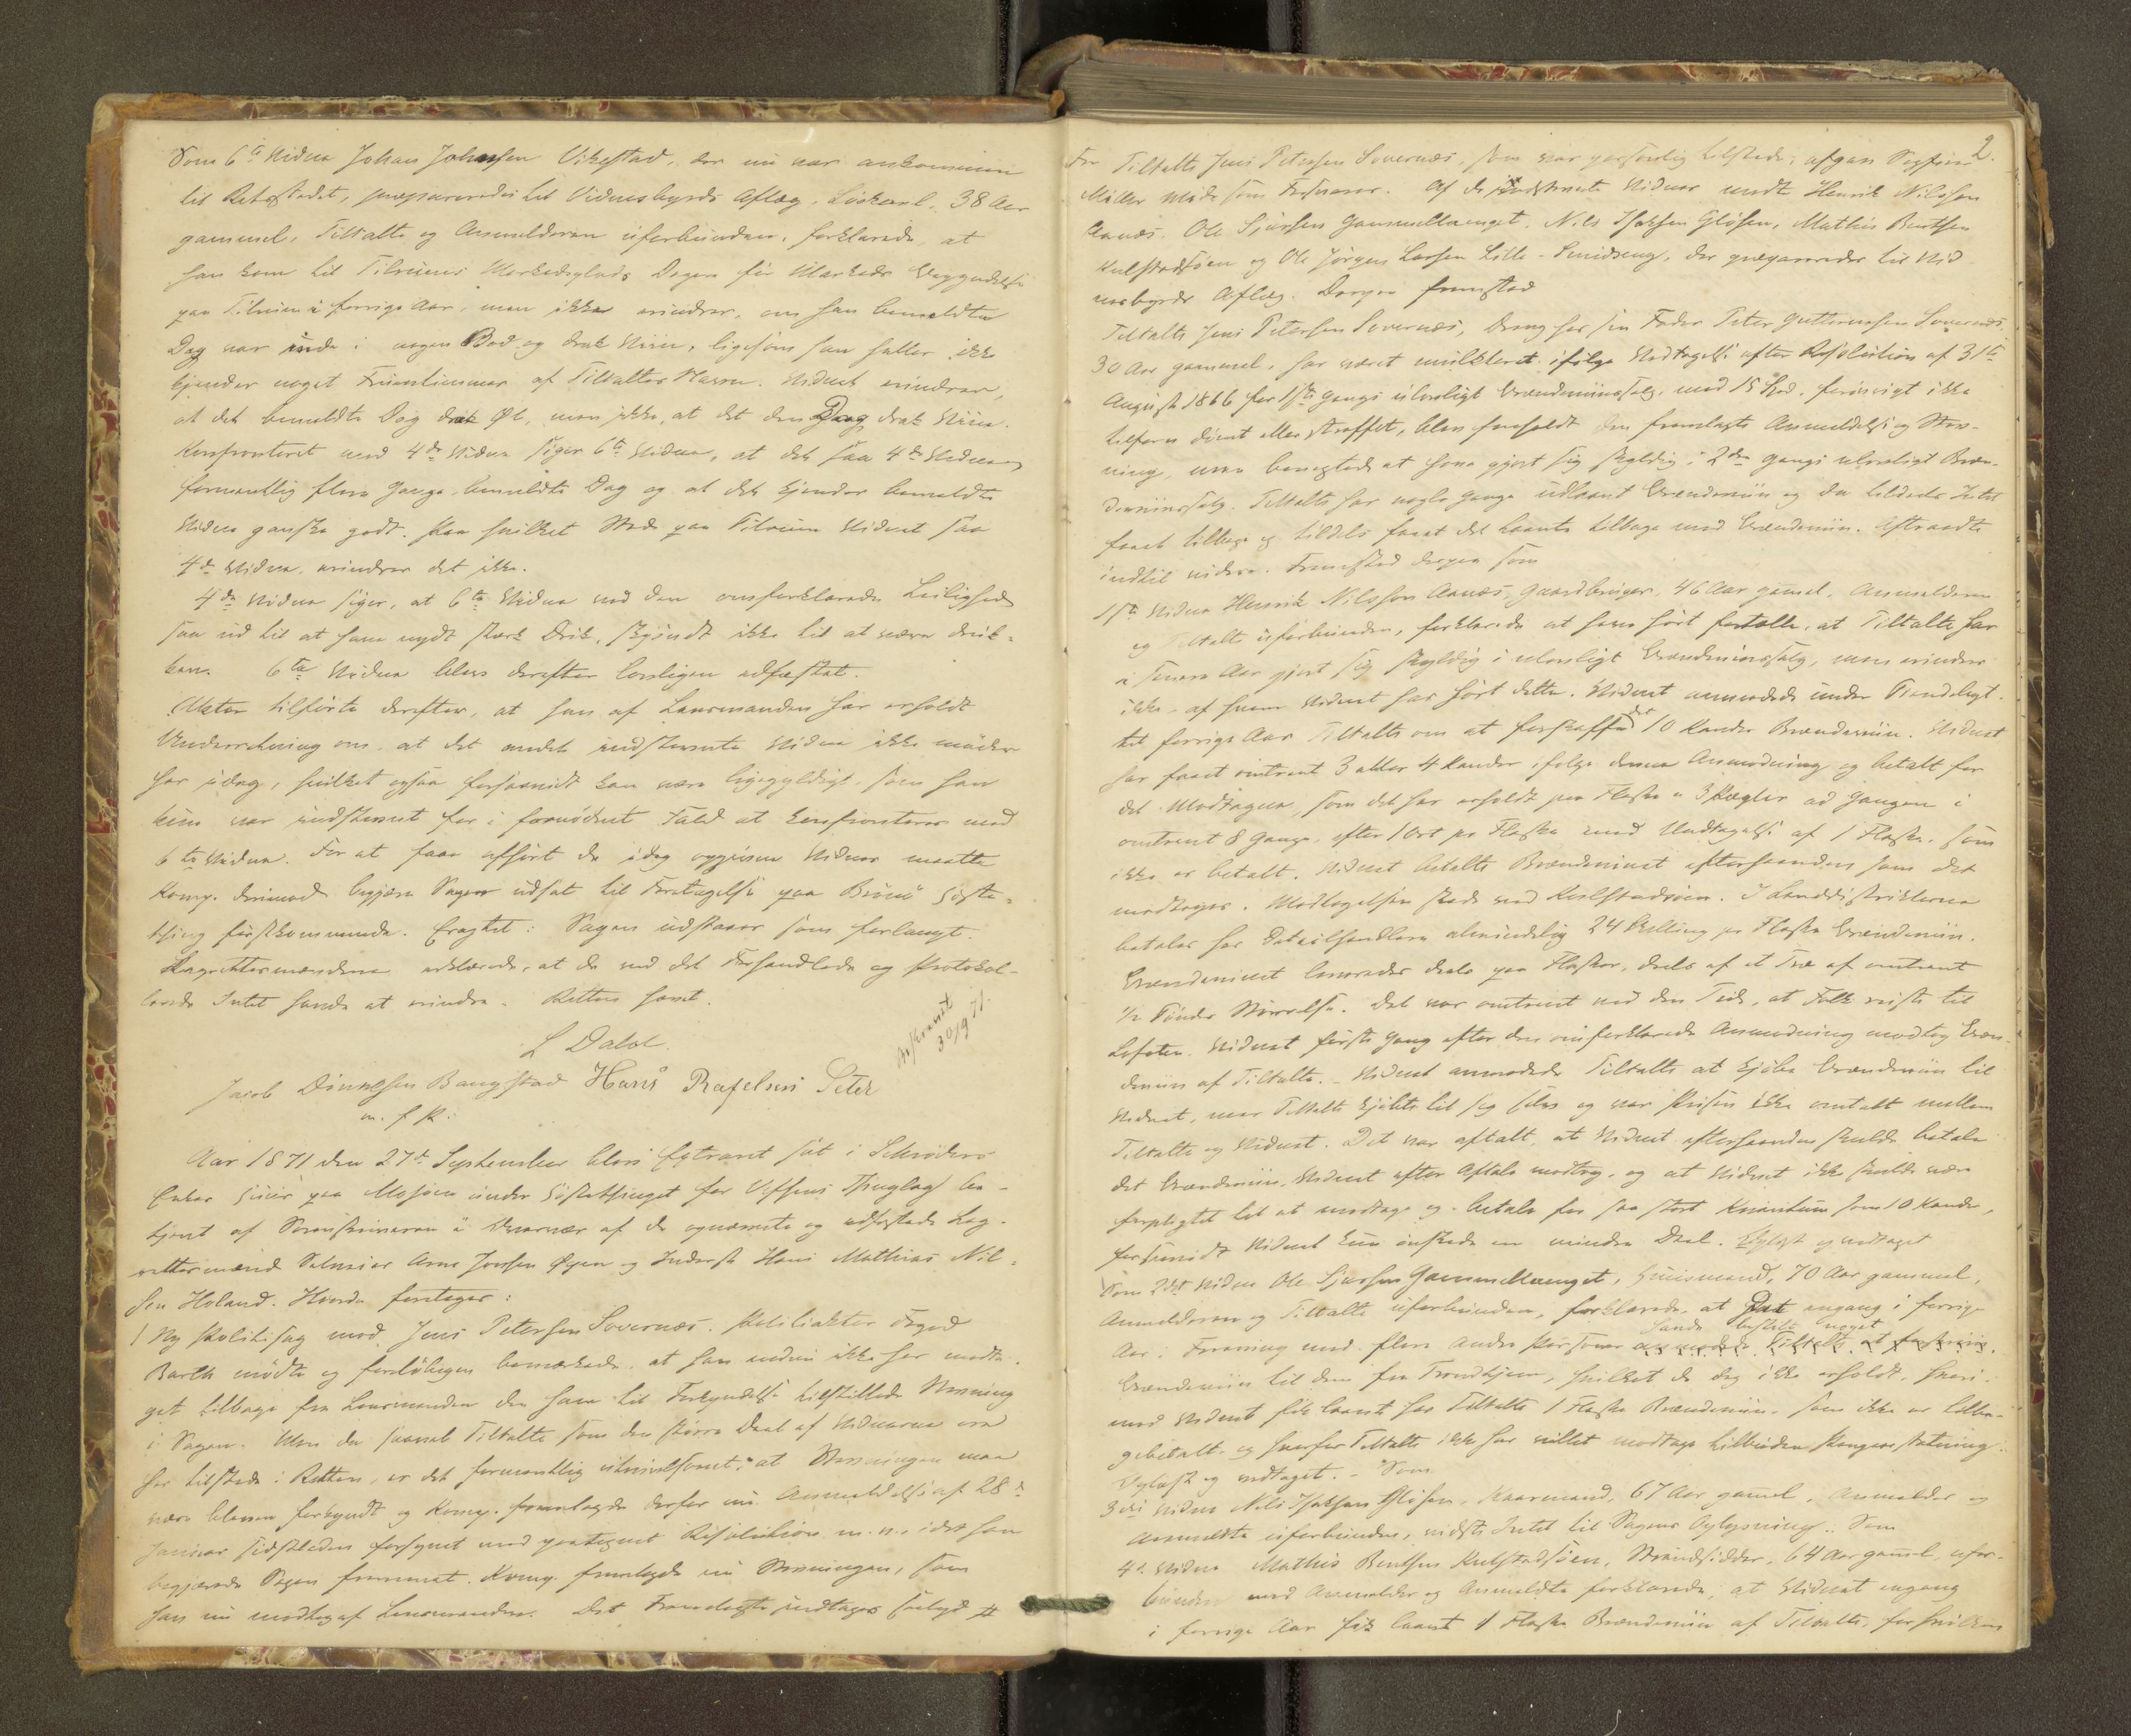 Som 6te Vidne Johan Johnsen Vikestad, der nu var ankommen
til Retsstedet, præpareredes til Vidnesbyrds Aflæg, Løskarl, 38 Aar
gammel, Tiltalte og Anmelderen uforbunden, forklarede, at
han kom til Tilrums Markedsplads Dagen før Markedets Begyndelse
paa Tilrum i forrige Aar, men ikke erindrer, om han bemeldte
Dag var inde i nogen Bod og drak Viin, ligesom han heller ikke
kjender noget Fruentimmer af Tiltaltes Navn. Vidnet erindrer,
at det bemeldte Dag drak Øl, men ikke, at det den Dag drak Viin.
Konfronteret med 4de Vidne siger 6te Vidne, at det saa 4de Vidne
formentlig flere Gange bemeldte Dag og at det kjender bemeldte
Vidne ganske godt. Paa hvilket Sted paa Tilrum Vidnet saa
4de Vidne, erindrer det ikke.
4de Vidne siger, at 6te Vidne ved den omforklarede Leilighed
saa ud til at have nydt stærk Drik, skjøndt ikke til at være druk-
ken. 6te Vidne blev derefter lovligen edfæstet.
Aktor tilførte derefter, at han af Lensmanden har erholdt
Underretning om, at det andet indstevnte Vidne ikke møder
her idag, hvilket ogsaa forsaavidt kan være ligegyldigt, som han
kun var indstevnt for i fornødent Fald at konfronteres med
6te Vidne. For at faa afhørt de idag opgivne Vidner maatte
Komp. derimod begjære Sagen udsat til Foretagelse paa Brønø Høste-
thing førstkommende. Eragtet: Sagen udstaaer som forlangt.
Lagrettesmændene erklærede, at de ved det Forhandlede og Protokol-
lerede Intet havde at erindre. Retten hævet.
L Dahl.
Jacob Dinnesen Bangstad Hans Rafelsen Seter
m. f. P.
Beskrevet
30/9 71.
Aar 1871 den 27de September blev Extraret sat i Schrøders
Enkes Huus paa Mosjøen under Høstethinget for Vefsens Thinglag be-
tjent af Sorenskriveren i Overvær af de opnævnte og edfæstede Lag-
rettesmænd Selveier Arne Jonsen Øyen og Inderst Hans Mathias Nil-
sen Holand. Hvorda foretoges:
1 Ny Politisag mod Jens Petersen Sovernæs. Politiaktor Foged
Barth mødte og foreløbigen bemærkede, at han endnu ikke har modta-
get tilbage fra Lensmanden den ham til Forkyndelse tilstillede Stevning
i Sagen. Men da saavel Tiltalte som den større Deel af Vidnerne ere
her tilstede i Retten, er det formentlig utvivlsomt, at Stevningen maa
være bleven forkyndt og Komp. fremlagde derfor nu Anmeldelse af 28de
Januar sidstleden forsynet med paategnet Resolution m. v., idet han
begjærede Sagen fremmet. Komp. fremlagde nu Stevningen, som
han nu modtog af Lensmanden. Det Fremlagte indtages saalyd #
2.
For Tiltalte Jens Petersen Sovernæs, som var personlig tilstede, afgav Sagfører
Møller Møde som Forsvarer. Af de indstevnte Vidner mødte Henrik Nilssen
Aanæs, Ole Sjursen Gammelvænget, Nils Isaksen Glösen, Mathis Bentsen
Kulstadsjøen og Ole Jørgen Larsen Lille-Smidseng, der præpareredes til Vid-
nesbyrds Aflæg. Derpaa fremstod
Tiltalte Jens Petersen Sovernæs, Dreng hos sin Fader Peter Guttormsen Sovernæs,
30 Aar gammel, har været mulkteret ifølge Vedtagelse efter Resolution af 31te
August 1866 for 1ste Gangs ulovligt Brændeviinssalg med 15 Spd. forøvrigt ikke
tilforn dømt eller straffet, blev foreholdt den fremlagte Anmeldelse og Stev-
ning, men benegtede at have gjort sig skyldig i 2den Gangs ulovligt Bræn-
deviinssalg. Tiltalte har nogle Gange udlaant Brændeviin og da tildeels Intet
faaet tilbage og tildels faaet det Laante tilbage med Brændeviin. Aftraadte
indtil videre. Fremstod derpaa som
1ste Vidne Henrik Nilssen Aanæs, Gaardbruger, 46 Aar gamel, Anmelderen
og Tiltalte uforbunden, forklarede at have hørt fortælle, at Tiltalte har
i senere Aar gjort sig skyldig i ulovligt Brændeviinssalg, men erindrer
ikke af hvem Vidnet har hørt dette. Vidnet anmodede under Tiendelagt-
tet forrige Aar Tiltalte om at forskaffe det 10 Kander Brændeviin. Vidnet
har faaet omtrent 3 eller 4 Kander ifølge denne Anmodning og betalt for
det Modtagne, som det har erholdt paa Flaske a 3 Pægler ad Gangen i
omtrent 8 Gange, efter 1 Ort pr Flaske med Undtagelse af 1 Flaske, som
ikke er betalt. Vidnet betalte Brændevinet efterhaanden som det
modtoges. Modtagelsen skede ved Kulstadsjøen. I Landdistrikterne
betales hos Detailhandlere almindelig 24 Skilling pr Flaske Brændeviin.
Brændevinet bevaredes deels paa Flasker, deels af et Træ af omtrent
1/2 Tønde Størrelse. Det var omtrent ved den Tid, at Folk reiste til
Lofoten, Vidnet første Gang efter den omforklarede Anmodning modtog Bræn-
deviin af Tiltalte. – Vidnet anmodede Tiltalte at kjøbe Brændeviin til
Vidnet, men Tiltalte kjøbte til sig selv og var Prisen ikke omtalt mellem
Tiltalte og Vidnet. Det var aftalt, at Vidnet efterhaanden skulde betale
det Brændeviin, Vidnet efter Aftale modtog, og at Vidnet ikke skulde være
forpligtet til at modtage og betale for saa stort Kvantum som 10 Kander,
forsaavidt Vidnet kun ønskede en mindre Deel. Oplæst og vedtaget
Som 2det Vidne Ole Sjursen Gammelvænget, Huusmand, 70 Aar gammel,
Anmelderen og Tiltalte uforbunden, forklarede, at Det engang i forrige
Aar i Forening med flere andre Personer havde bestilt noget
Brændeviin til dem fra Trondhjem, hvilket de dog ikke erholdt, hvori-
mod Vidnet fik laant hos Tiltalte 1 Flaske Brændeviin, som ikke er tilba-
gebetalt og hvorfor Tiltalte ikke har villet modtage tilbuden Pengeerstatning.
Oplæst og vedtaget. – Som
3die Vidne Nils Isaksen Glösen, Kaarmand, 67 Aar gamel, Anmelder og
Anmeldte uforbunden, vidste Intet til Sagens Oplysning. Som
4de Vidne Mathis Bentsen Kulstadsjøen, Strandsidder, 64 Aar gamel, ufor-
bunden med Anmelder og Anmeldte forklarede, at Vidnet engang
i forrige Aar fik laant 1 Flaske Brændeviin af Tiltalte, for hvilken